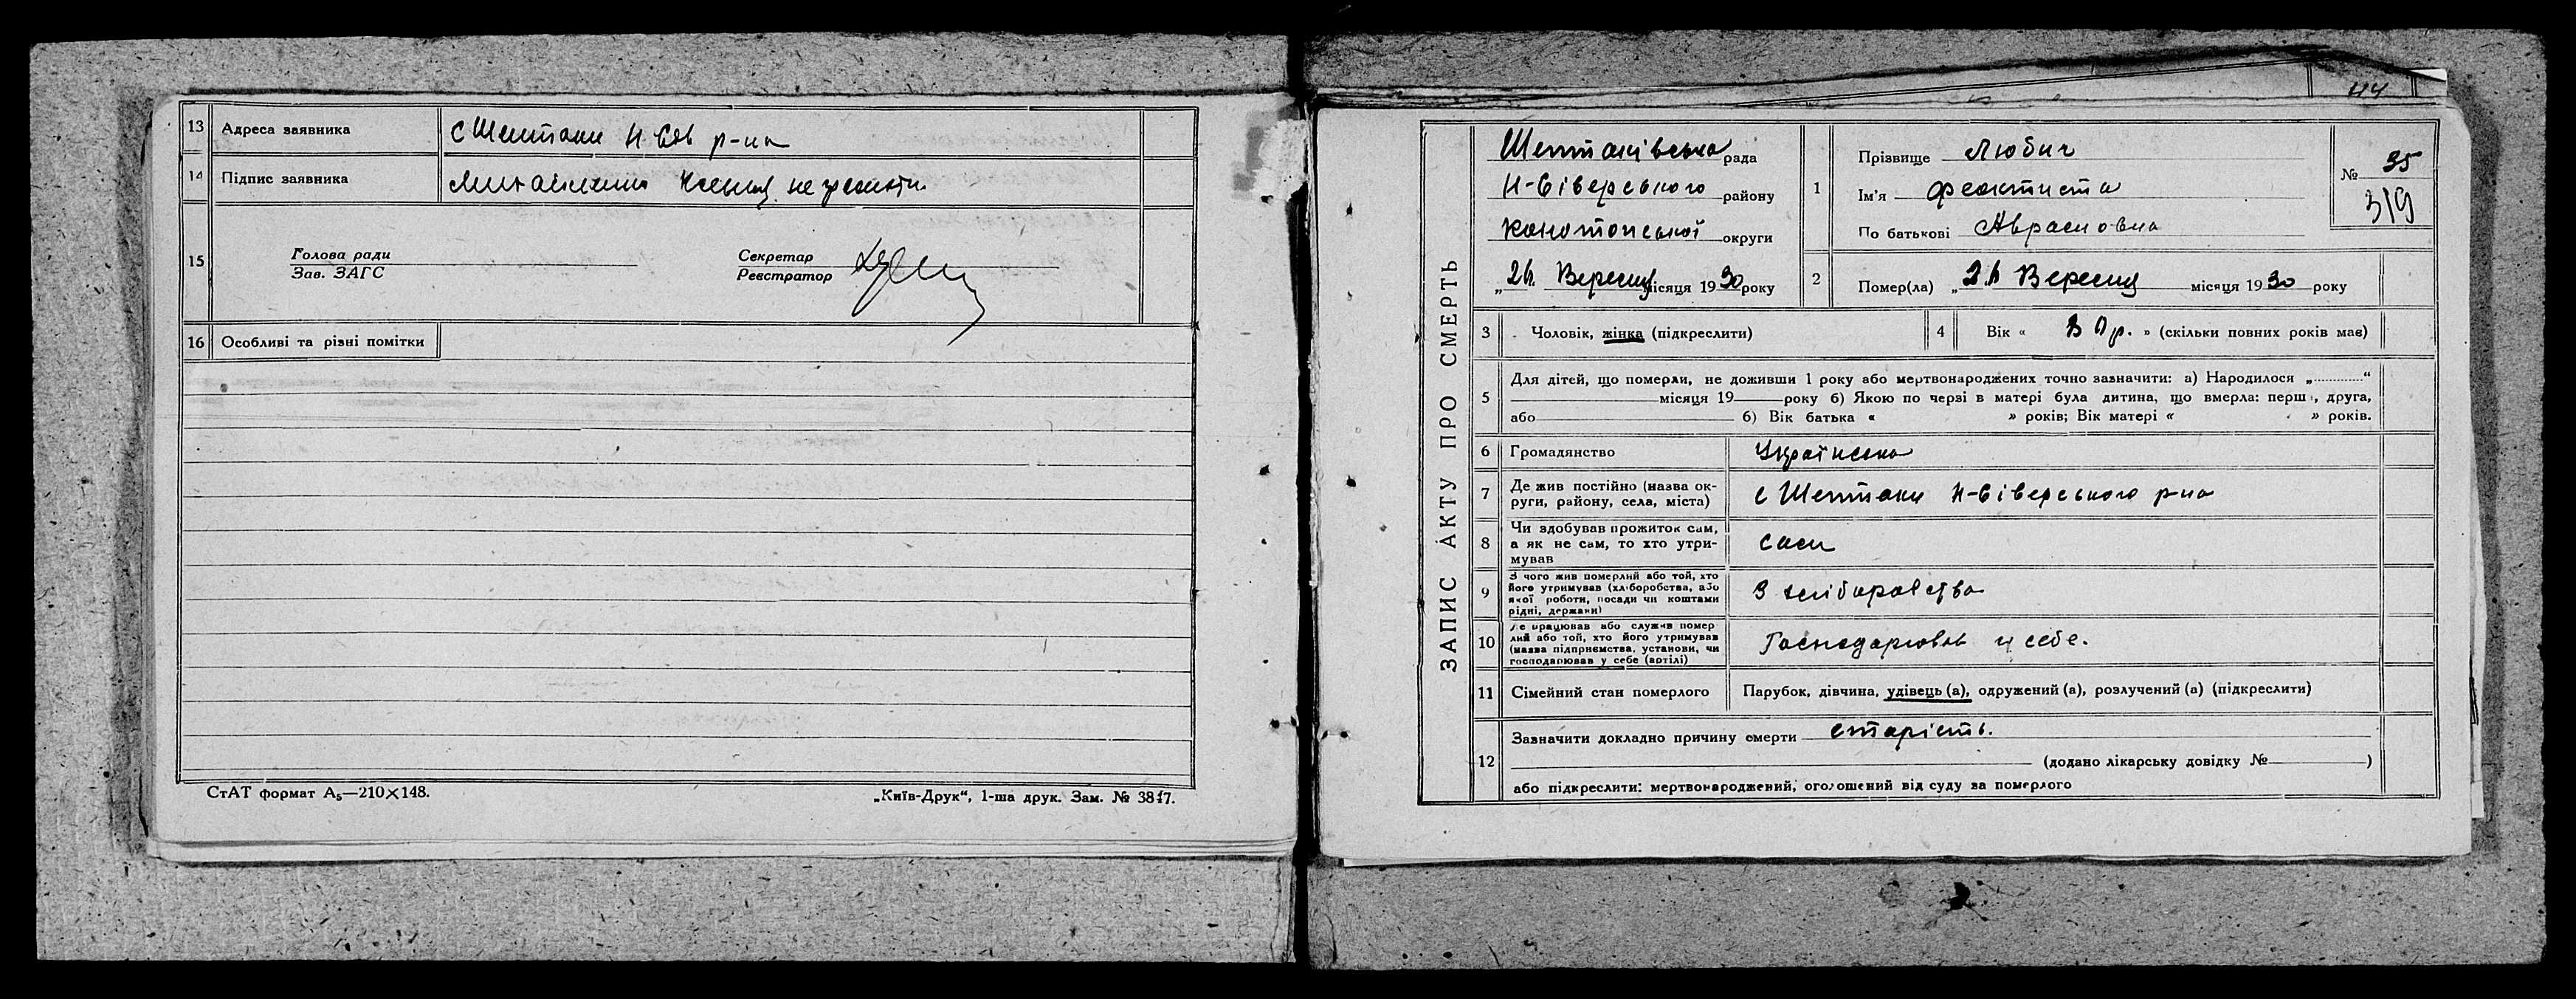 13 Адреса заявника с Шептаки Н-Сів р-на
14 Підпис заявника неграмотн.
15 Голова ради
Зав. ЗАГС
Секретар
Реєстратор
16 Особливі та різні помітки
СтАТ формат А₅—210×148.
„Київ-Друк“, 1-ша друк. Зам. № 3847.
414
ЗАПИС АКТУ ПРО СМЕРТЬ
Шептаківська рада
Н-Сіверського району
Конотопської округи
„ Вересня місяця 1930 року
1 Прізвище Любич
Ім'я Феоктиста
По батькові Аврамовна
№ 35
319
2 Помер(ла) „ Вересня місяця 1930 року
3 Чоловік, жінка (підкреслити)
4 Вік « р. » (скільки повних років має)
5 Для дітей, що померли, не доживши 1 року або мертвонароджених точно зазначити: а) Народилося „ “
місяця 19 року б) Якою по черзі в матері була дитина, що вмерла: перша, друга,
або б) Вік батька « » років; Вік матері « » років.
6 Громадянство Українська
7 Де жив постійно (назва ок-
руги, району, села, міста) с Шептаки Н-Сіверського р-на
8 Чи здобував прожиток сам,
а як не сам, то хто утри-
мував сам
9 З чого жив померлий або той, хто
його утримував (хліборобства, або
якої роботи, посади чи коштами
рідні, держави) З хліборобства
10 Де працював або служив помер
лий або той, хто його утримував
(назва підприємства, установи, чи
господарював у себе (артілі) Господарював у себе.
11 Сімейний стан померлого Парубок, дівчина, удівець (а), одружений (а), розлучений (а) (підкреслити)
12 Зазначити докладно причину смерти старість.
(додано лікарську довідку № )
або підкреслити: мертвонароджений, оголошений від суду за померлого